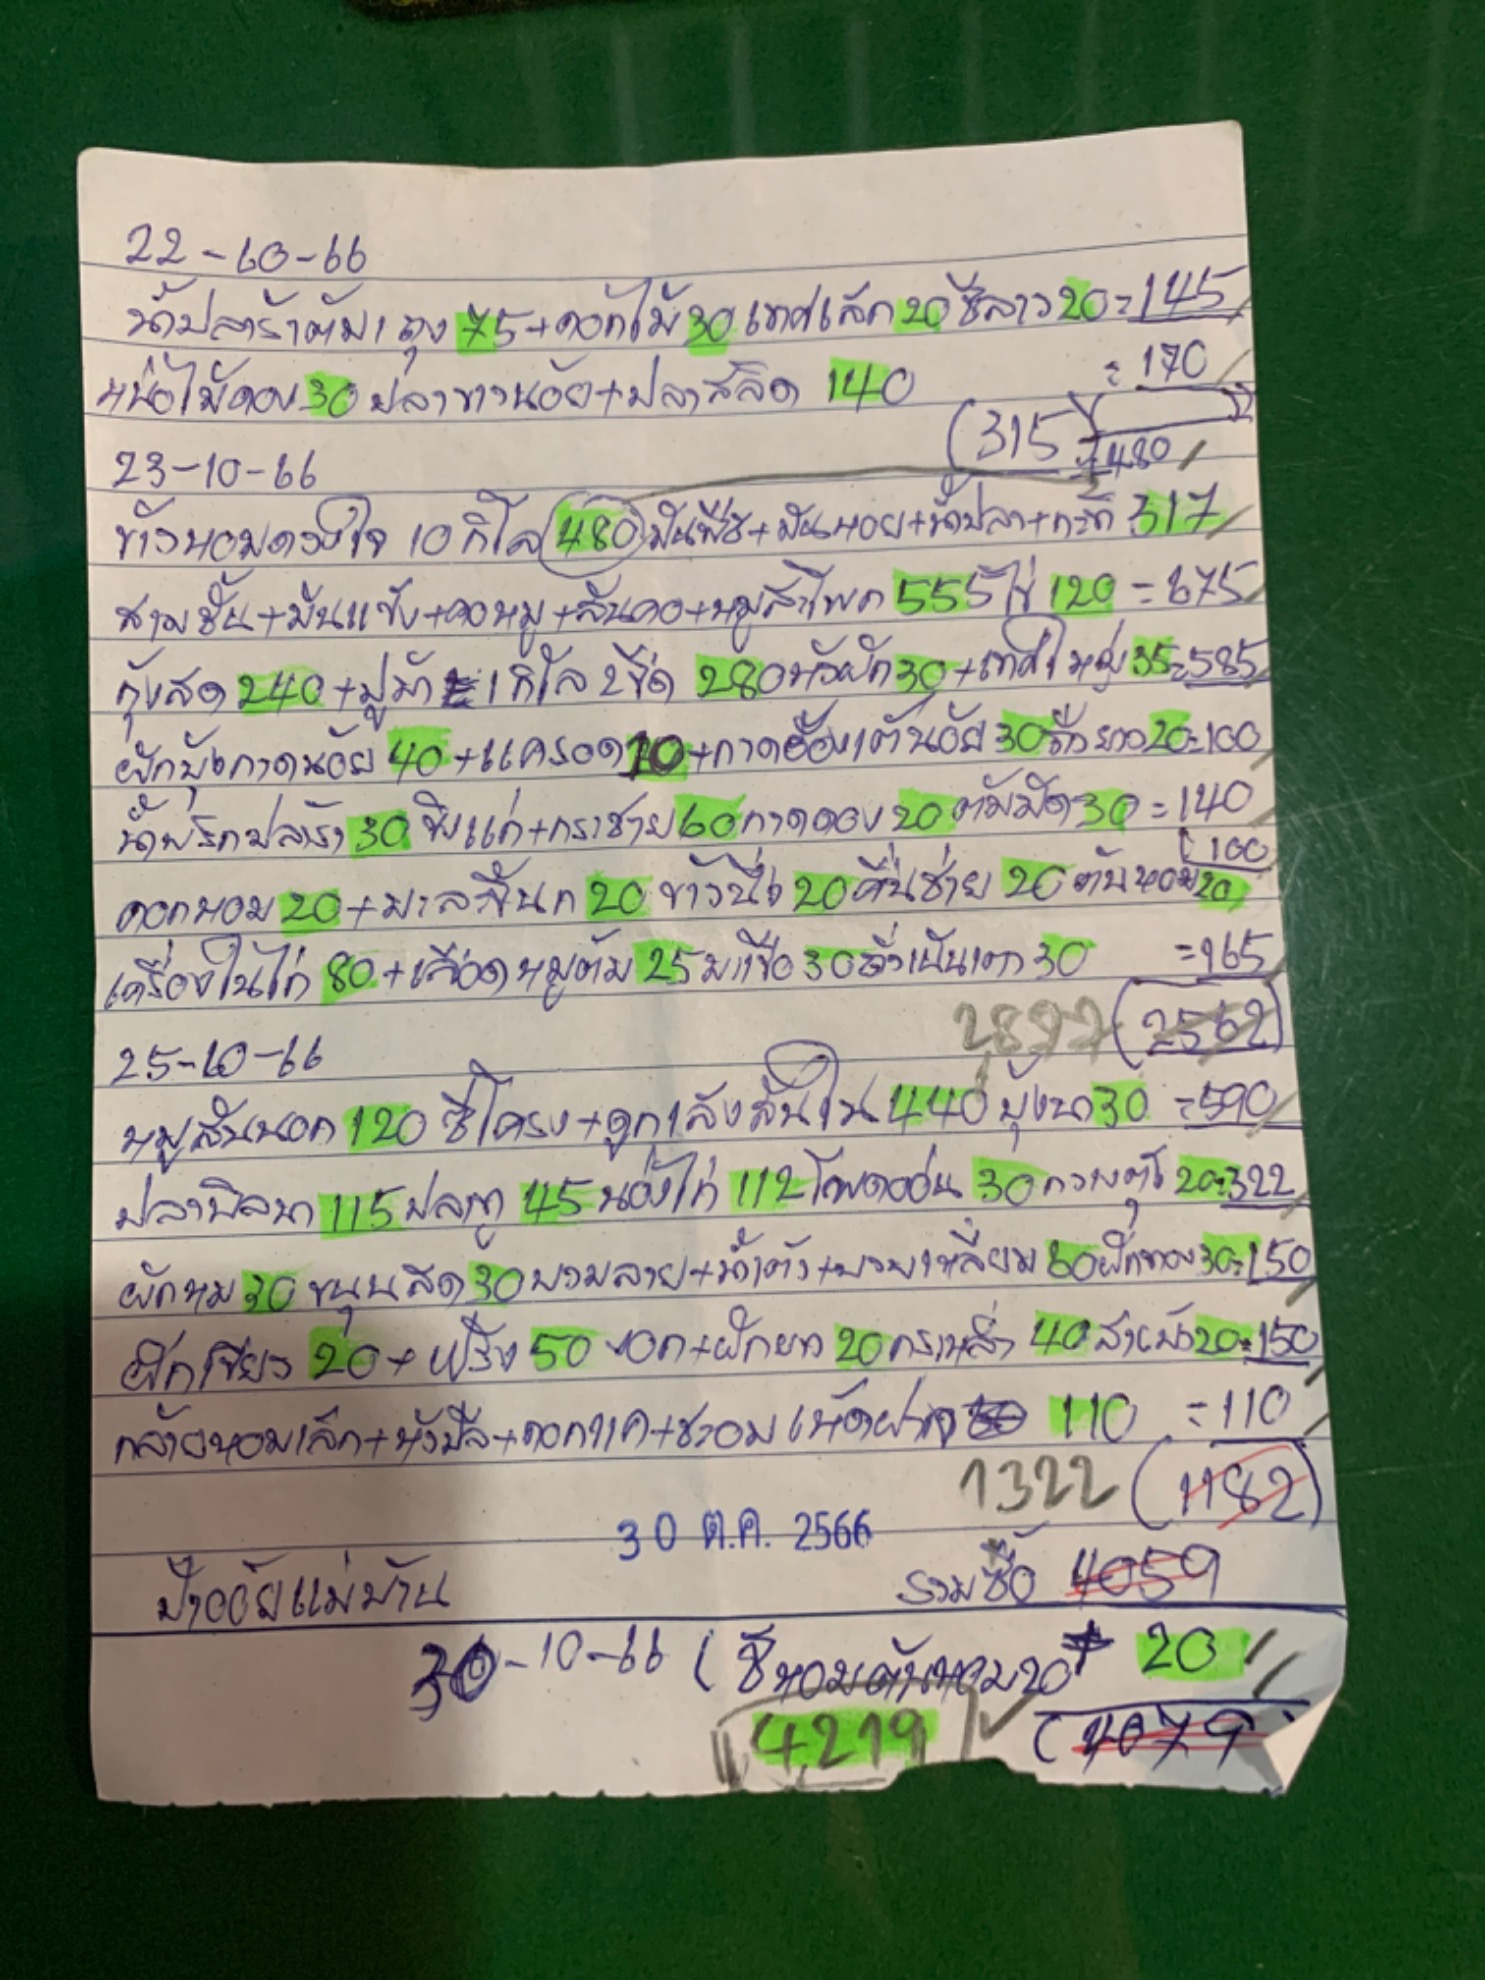 22-10-66
น้ำปลาร้าต้ม 1 ถุง 75+ดอกไม้ 30 เทศเล็ก 20 ชีลาว 20=145
หน่อไม้ดอง 30 ปลาขาวน้อย+ปลาสลิด 140 =170
(315)
23-10-66 =480
ข้าวหอมดวงใจ 10 กิโล 480 มันพืช+มันหอย+น้ำปลา+กะทิ 317
สามชั้น+มันแข็ง+คอหมู+สันคอ+หมูสะโพก 555 ไข่ 120 =675
กุ้งสด 240+ปูม้า 1 กิโล 2 ขีด 280 หัวผัก 30+เทศใหญ่ 35=585
ผักบุ้งกาดน้อย 40+แครอด 10+กาดฮ้องเต้น้อย 30 ถั่วยาว 20=100
น้ำพริกปลาร้า 30 ขิงแก่+กราชาย 60 กาดดอง 20 ต้มมัด 30 =140
(100
ดอกหอม 20+มะละขี้นก 20 ข้าวนึ่ง 20 คื่นช่าย 20 ต้นหอม 20
เครื่องในไก่ 80+เลือดหมูต้ม 25 มะเขือ 30 ถั่ว 30 =165
2897 (2562)
25-10-66
หมูสันนอก 120 ซี่โครง+ดูกเล้งสันใน 440 บุ้งนา 30 =590
ปลานิลนา 115 ปลาทู 45 น่องไก่ 112 โพดอ่อน 30 กวางตุ้ง 20=322
ผักหม 30 ขนุนสด 30 บวบลาย+น้ำเต้า+บวบเหลี่ยม 60 ฟักทอง 30=150
ฟักเขียว 20+ฝรั่ง 50 ผัก 20 กะหล่ำ 40 20=150
กล้วยหอมเล็ก+หัวปลี+ดอกแค+ชะอม เห็ดฟาง 110 =110
1322 (1182)
30 ต.ค. 2566
ป้าออ้ยแม่บ้าน รวมซื้อ 4059
30-10-66 (ชีหอมต้นหอม 20+ 20
4219 (4079)